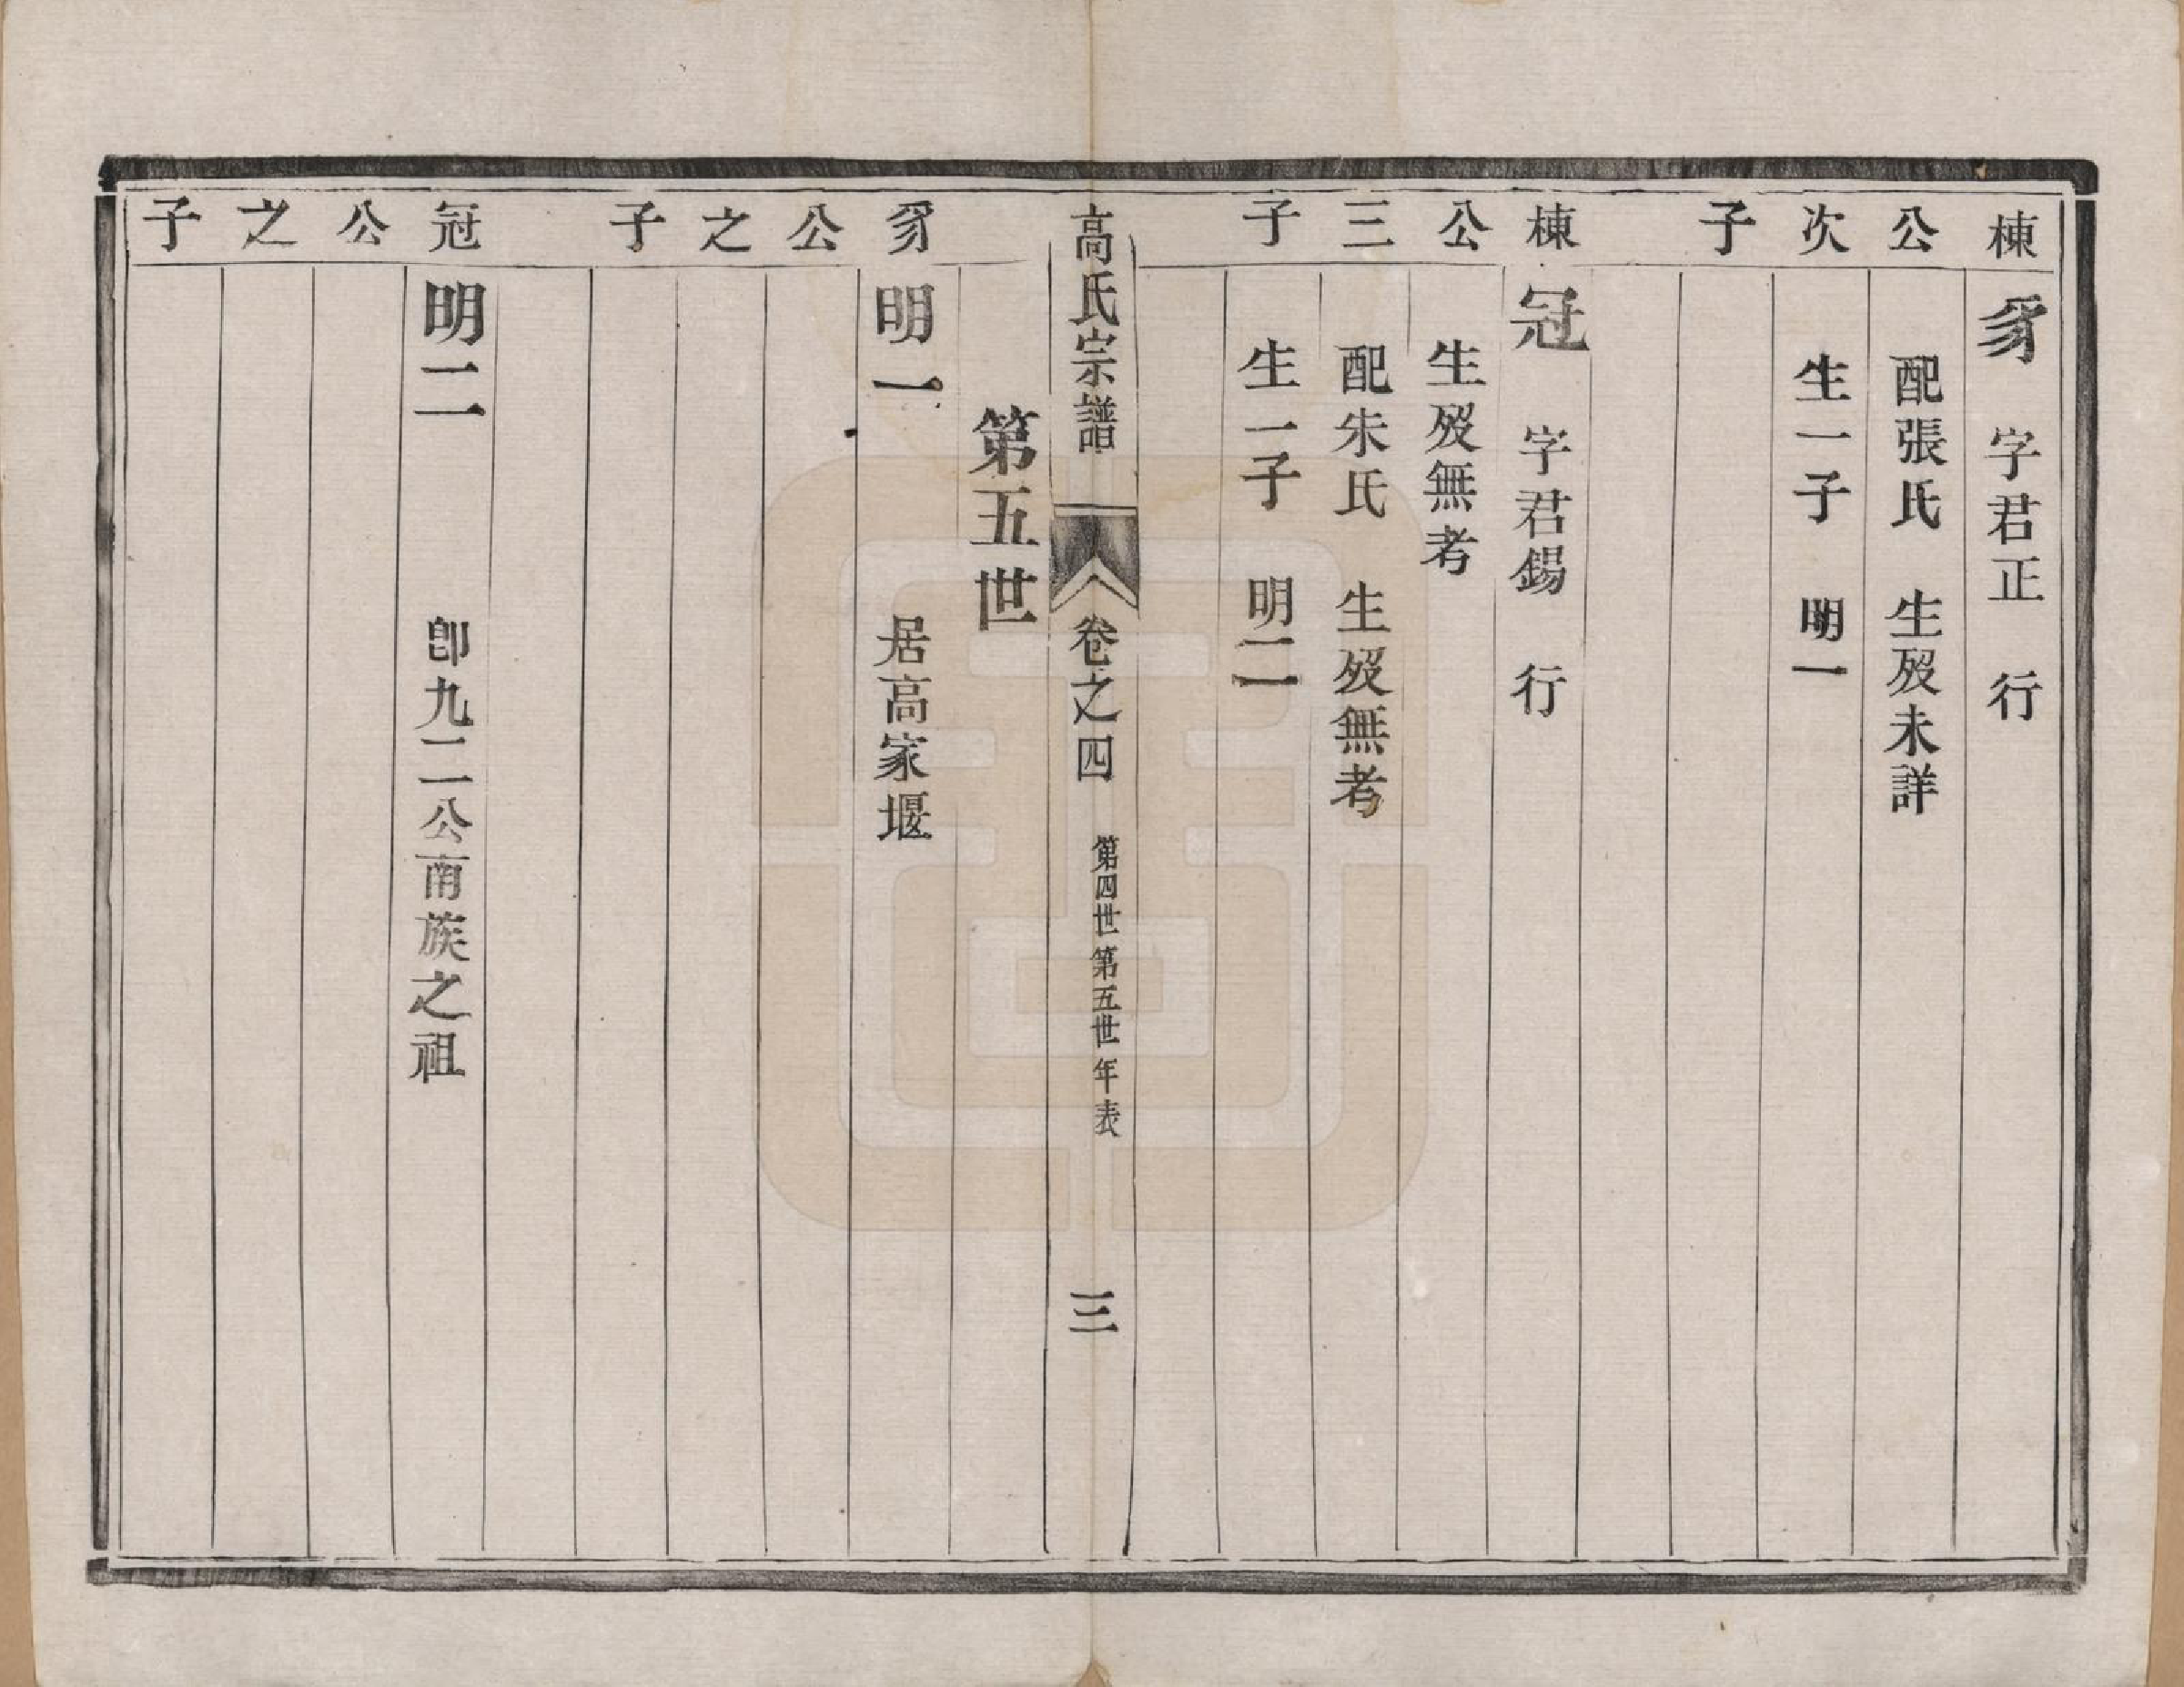 棟公次子
豸 字君正 行
配張氏 生殁未詳
生一子 明一
棟公三子
冠 字君錫 行
生殁無考
配朱氏 生殁無考
生一子 明二
高氏宗譜 卷之四 第四世第五世年表 三
第五世
豸公之子
明一 居高家堰
冠公之子
明二 卽九二公南族之祖